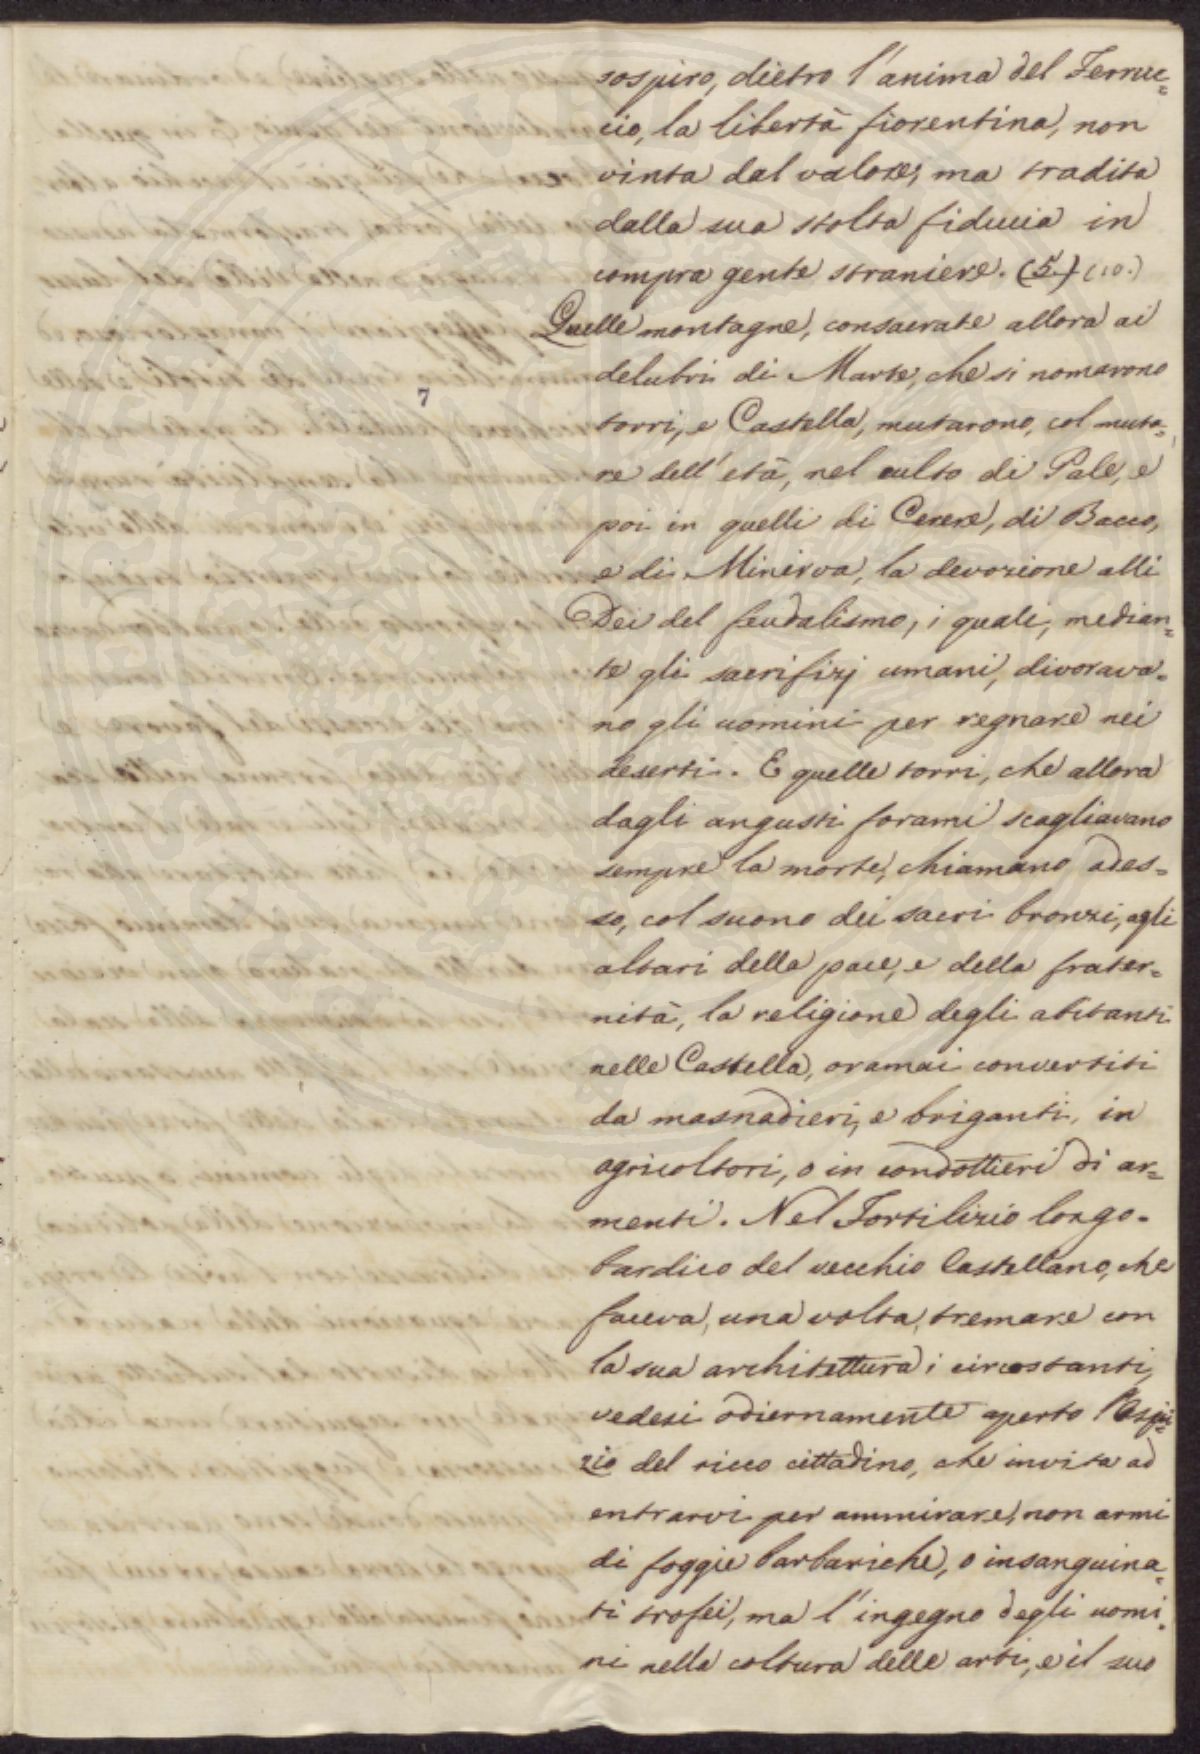 sospiro, dietro l'anima del Ferruc=
cio, la libertà fiorentina, non
vinta dal valore, ma tradita
dalla sua stolta fiducia in
compra gente straniere. (5.) (10.)
Quelle montagne, consacrate allora ai
delubri di Marte, che si nomarono
torri, e Castella, mutarono, col muta=
re dell'età, nel culto di Pale, e
poi in quelli di Cerere, di Bacco,
e di Minerva, la devozione alli
Dei del feudalismo, i quali, median=
te gli sacrifizj umani, divorava=
no gli uomini per regnare nei
deserti. E quelle torri, che allora
dagli angusti forami scagliavano
sempre la morte, chiamano ades=
so, col suono dei sacri bronzi, agli
altari della pace, e della frater=
nità, la religione degli abitanti
nelle Castella, oramai convertiti
da masnadieri, e briganti, in
agricoltori, o in condottieri di ar=
menti. Nel Fortilizio longo=
bardico del vecchio Castellano, che
faceva, una volta, tremare con
la sua architettura i circostanti,
vedesi odiernamente aperto l'Ospi=
zio del ricco cittadino, che invita ad
entrarvi per ammirare, non armi
di foggie barbariche, o insanguina=
ti trofei, ma l'ingegno degli uomi=
ni nella coltura delle arti, e il suo
7